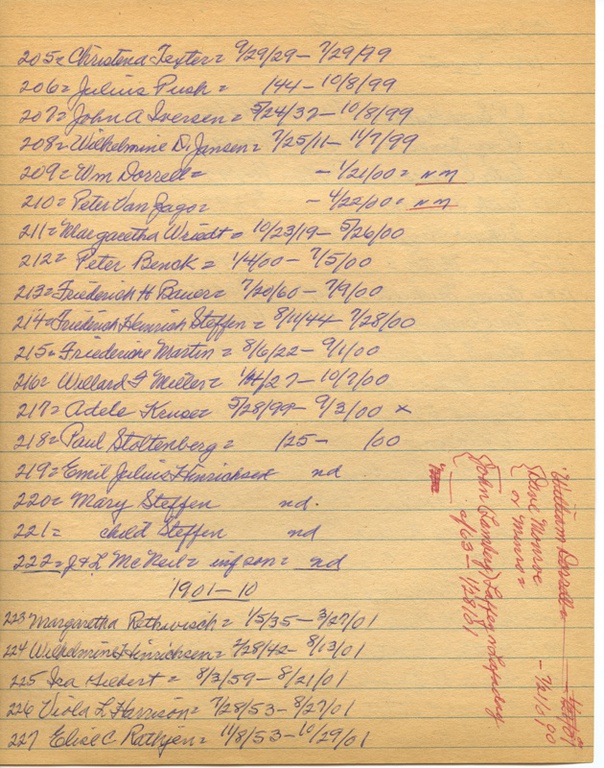 205= Christena Texter= 9/29/29 - 7/29/99
206= Julius Push= 144 - 10/8/99
207= John A Iversen= 5/24/37 - 10/8/99
208= Wilhelmine D. Jansen= 7/25/11 - 11/7/99
209= Wm Dorrell= - 1/21/00= nm
210= Peter Van Jago= - 4/22/00= nm
211= Margaretha Wriedt= 10/23/19 - 5/26/00
212= Peter Benck= 1/4/00 - 7/5/00
213= Friederich H Bauer= 7/20/60 - 7/9/00
214= Friedrich Heinrich Steffen= 8/11/44 - 7/28/00
215= Friederiche Martin= 8/6/22 - 9/1/00
216= Willard F Miller= 27 - 10/7/00
217= Adele Kruse= 5/28/99 - 9/3/00 x
218= Paul Stoltenberg= 125 - 100
219= Emil Julius Hinrichsen nd
220= Mary Steffen nd.
221= child Steffen nd
222= J & L McNeil= inf son= nd
1901-10
223 Margaretha Rethwisch= 1/5/35 - 3/27/01
224 Wilhelmine Hinrichsen= 2/28/42 - 8/13/01
225 Ica Siebert= 8/3/59 - 8/21/01
226 Viola L Harrison= 7/28/53 - 8/27/01
227 Elise C Rathjen= 11/8/53 - 10/29/01
William Dorrell=
{Dave Monroe - 7/21/90
or
{John (Lambert)
c/63 - 1/28/81